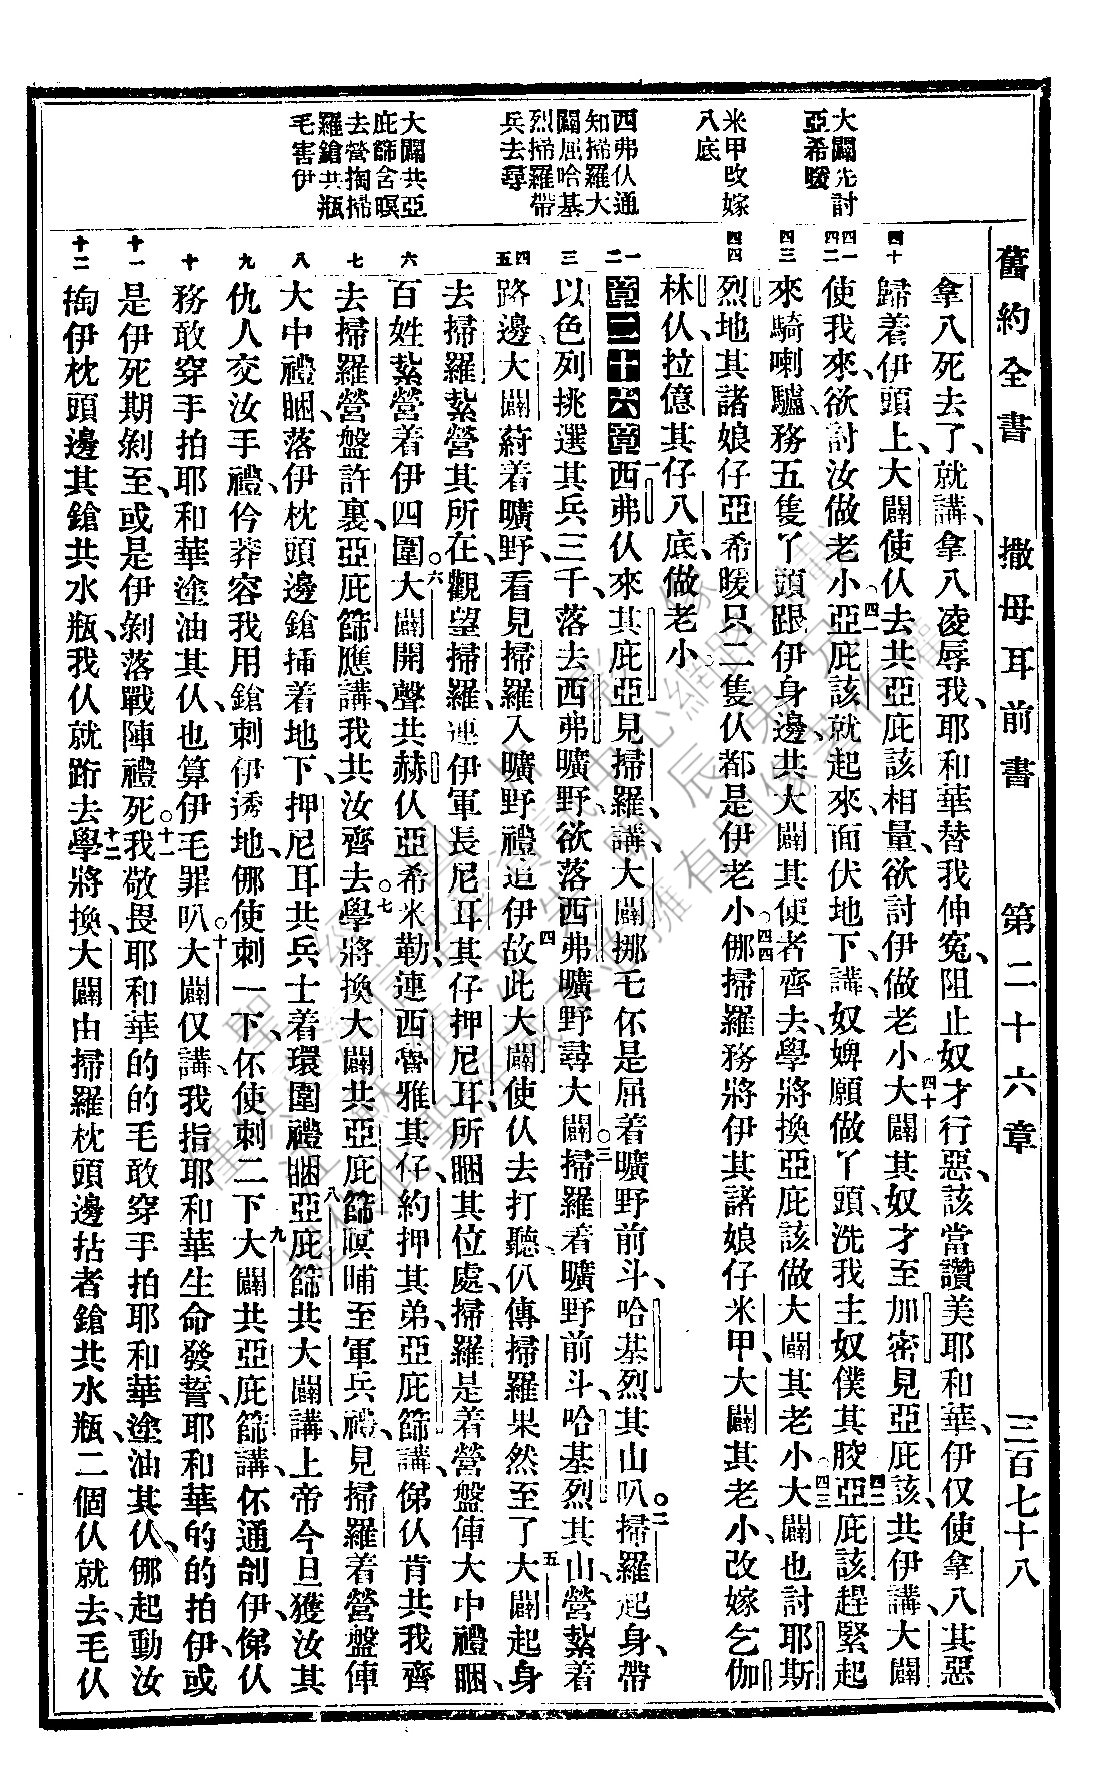 舊約全書　撒母耳前書　第二十六章　三百七十八
大闢先討
亞希暖
米甲改嫁
八底
西弗仈通
知掃羅大
闢屈哈基
烈掃羅帶
兵去尋
大闢共亞
庇篩含暝
去營掏掃
羅鎗共瓶
毛害伊
四十
四一
四二
四三
四四
一
二
三
四
五
六
七
八
九
十
十一
十二
拿八死去了、就講、拿八凌辱我、耶和華替我伸冤、阻止奴才行惡、該當讚美耶和華、伊仅使拿八其惡
歸着伊頭上、大闢使仈去共亞庇該相量、欲討伊做老小○四十大闢其奴才至加密見亞庇該、共伊講、大闢
使我來、欲討汝做老小○四一亞庇該就起來、面伏地下、講、奴婢願做丫頭洗我主奴僕其骹○四二亞庇該趕緊起
來、騎喇驢、務五隻丫頭跟伊身邊、共大闢其使者齊去、學將換亞庇該做大闢其老小○四三大闢也討耶斯
烈地其諸娘仔亞希暖、只二隻仈都是伊老小○四四㑚掃羅務將伊其諸娘仔米甲、大闢其老小、改嫁乞伽
林仈拉億其仔八底、做老小○
章二十六章一西弗仈來其庇亞見掃羅、講、大闢挪乇伓是屈着曠野前斗、哈基烈其山叭○二掃羅起身、帶
以色列挑選其兵三千、落去西弗曠野、欲落西弗曠野尋大闢○三掃羅着曠野前斗、哈基烈其山、營紥着
路邊、大闢蒔着曠野、看見掃羅入曠野禮追伊、四故此大闢使仈去打聽、仈傳掃羅果然至了○五大闢起身
去掃羅紥營其所在、觀望掃羅、連伊軍長尼耳其仔押尼耳、所睏其位處、掃羅是着營盤俥大中禮睏、
百姓紥營着伊四圍○六大闢開聲共赫仈亞希米勒、連西魯雅其仔、約押其弟亞庇篩、講、俤仈肯共我齊
去掃羅營盤許裏、亞庇篩應講、我共汝齊去○七學將換大闢共亞庇篩暝晡至軍兵禮、見掃羅着營盤俥
大中禮睏、落伊枕頭邊、鎗揷着地下、押尼耳共兵士着環圍禮睏○八亞庇篩共大闢講、上帝今旦獲汝其
仇人交汝手禮、仱莽容我用鎗刺伊透地、㑚使刺一下、伓使刺二下○九大闢共亞庇篩講、伓通剖伊、俤仈
務敢穿手拍耶和華塗油其仈、也算伊毛罪叭○十大闢仅講、我指耶和華生命發誓、耶和華的的拍伊、或
是伊死期剝至、或是伊剝落戰陣禮死○十一我敬畏耶和華的的毛敢穿手拍耶和華塗油其仈、㑚起動汝
掏伊枕頭邊其鎗共水瓶、我仈就跡去○十二學將換、大闢由掃羅枕頭邊拈者鎗共水瓶、二個仈就去、毛仈